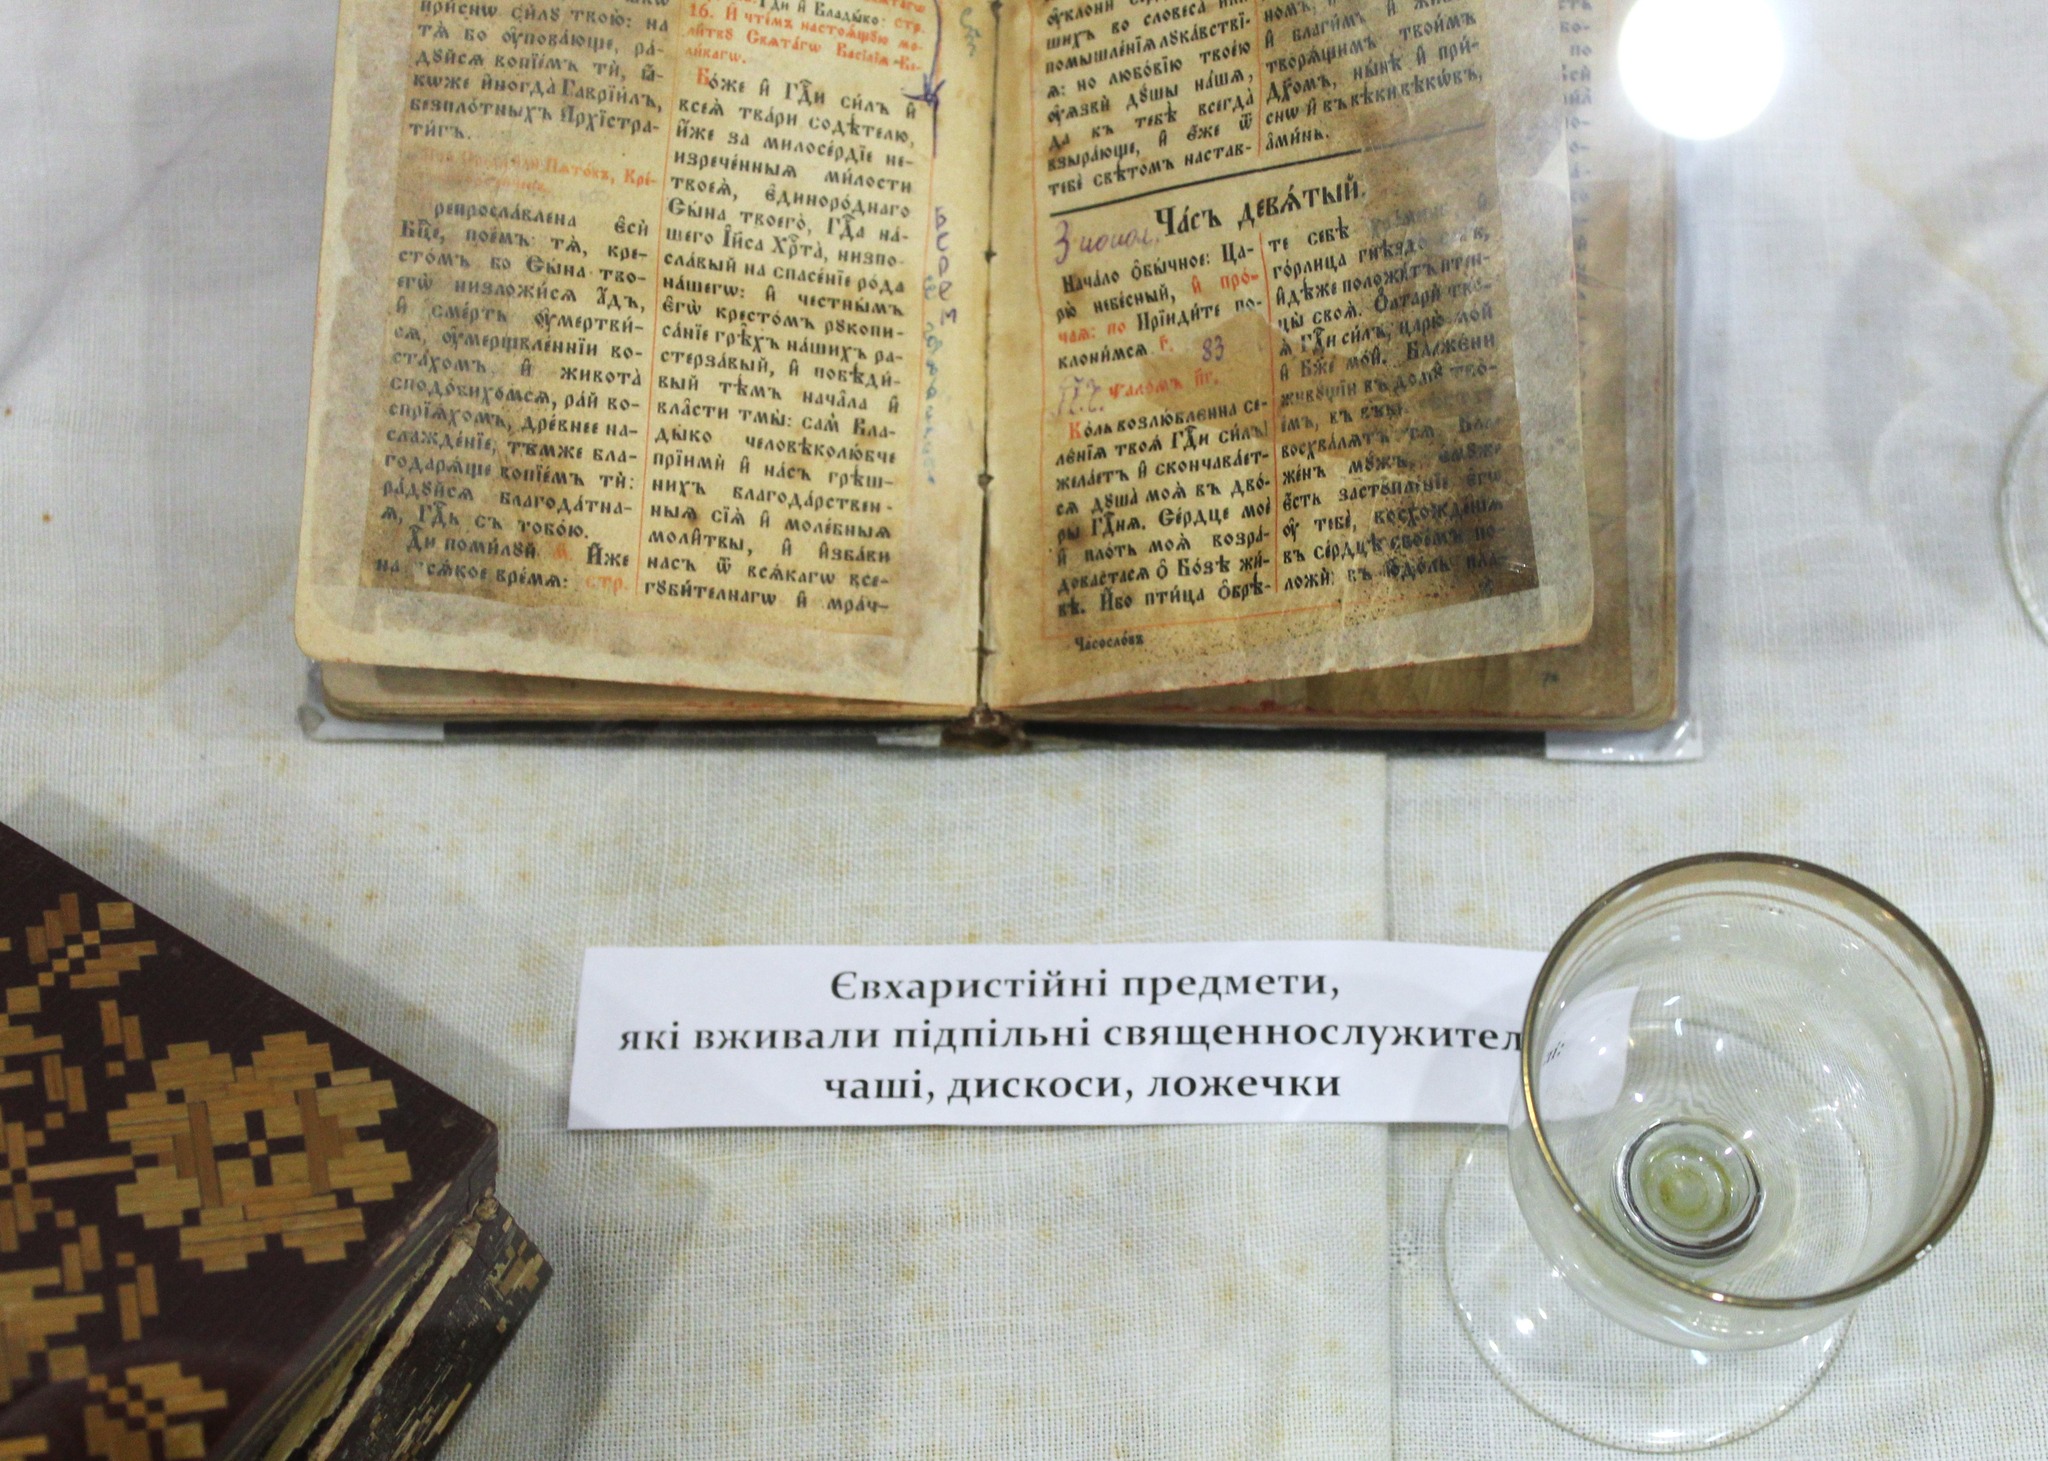 приснѡ си́лꙋ твою̀: на
тѧ̀ бо ᲂу҆пова́юще, ра́-
дꙋйсѧ вопїе́мъ тѝ, ꙗ҆́-
коже и҆ногда̀ Гаврїи́лъ,
безпло́тныхъ А҆рхїстра-
ти́гъ.
Пѧто́къ, Кре-
репросла́влена є҆сѝ
Бц҃е, пое́мъ тѧ̀, кре-
сто́мъ бо Сы́на тво-
егѡ̀ низложи́сѧ а҆́дъ,
и҆ сме́рть ᲂу҆мертви́-
сѧ, ᲂу҆мерщвле́ннїи во-
ста́хомъ, и҆ живота̀
сподо́бихомсѧ, ра́й во-
спрїѧ́хомъ, дре́внее на-
слажде́нїе, тѣ́мже бла-
годарѧ́ще вопїе́мъ тѝ:
ра́дꙋйсѧ благода́тна-
ѧ, Гдⷭ҇ь съ тобо́ю.
Гдⷭ҇и поми́лꙋй И҆́же
на всѧ́кое вре́мѧ: стр.
Гдⷭ҇и и҆ Влады́ко: стр.
16. И҆ чте́мъ настоѧ́щꙋю мо-
ли́твꙋ Свѧта́гѡ Васі́лїѧ Ве-
ли́кагѡ.
Бо́же и҆ Гдⷭ҇и си́лъ и҆
всеѧ̀ тва́ри содѣ́телю,
и҆́же за милосе́рдїе не-
изрече́нныѧ ми́лости
твоеѧ̀, є҆диноро́днаго
Сы́на твоего̀, Гдⷭ҇а на́-
шего І҆и҃са Хрⷭ҇та̀, низпо-
сла́вый на спасе́нїе ро́да
на́шегѡ: и҆ честны́мъ
є҆гѡ̀ кресто́мъ рꙋкопи-
са́нїе грѣ̑хъ на́шихъ ра-
стерза́вый, и҆ побѣди́-
вый тѣ́мъ нача̑ла и҆
вла̑сти тмы̀: са́мъ Вла-
ды́ко человѣколю́бче
прїимѝ и҆ на́съ грѣ́ш-
ныхъ благода́рствен-
ныѧ сїѧ̑ и҆ моле́бныѧ
моли̑твы, и҆ и҆зба́ви
на́съ ѿ всѧ́кагѡ все-
гꙋби́телнагѡ и҆ мра́ч-
ᲂу҆клони
шихъ во словеса̀
помышле́нїѧ лꙋка́встві-
ѧ: но любо́вїю твое́ю
ᲂу҆ѧзвѝ дꙋ́шы на́шѧ,
да къ тебѣ̀ всегда̀
взыра́юще, и҆ є҆́же ѿ
тебє̀ свѣ́томъ настав-
номъ,
и҆ благи́мъ и҆
творѧ́щимъ твои́мъ
дх҃омъ, ны́нѣ и҆ при́-
снѡ и҆ въ вѣ́ки вѣкѡ́въ,
а҆ми́нь.
Ча́съ девѧ́тый.
Нача́ло ѻ҆бы́чное: Ца-
рю̀ небе́сный, и҆ про́-
чаѧ: по Прїиди́те по-
клони́мсѧ г҃.
83
Ѱало́мъ п҃г.
Ко́ль возлю́бленна се-
лє́нїѧ твоѧ̑ Гдⷭ҇и си́лъ!
жела́етъ и҆ скончава́ет-
сѧ дꙋша̀ моѧ̀ въ дво-
ры̀ Гдⷭ҇нѧ. Се́рдце моѐ
и҆ пло́ть моѧ̀ возра́-
довастасѧ ѻ҆ Бо́зѣ жи́-
вѣ. И҆́бо пти́ца ѻ҆брѣ́-
Часосло́въ
те себѣ̀ хра́минꙋ и҆
го́рлица гнѣздо̀ себѣ̀,
и҆дѣ́же положи́тъ птен-
цы̀ своѧ̑. Ѻ҆лтари̑ тво-
ѧ̑ Гдⷭ҇и си́лъ, царю̀ мо́й
и҆ Бж҃е мо́й. Блаже́ни
живꙋ́щїи въ домꙋ̀ тво-
е́мъ, въ вѣ́ки
восхва́лѧтъ тѧ̀. Бла-
же́нъ мꙋ́жъ, є҆мꙋ́же
є҆́сть застꙋпле́нїе є҆гѡ̀
ᲂу҆ тебє̀, восхождє́нїѧ
въ се́рдцѣ свое́мъ по-
ложѝ: въ ю҆до́ль пла-
Євхаристійні предмети,
які вживали підпільні священнослужител
чаші, дискоси, ложечки